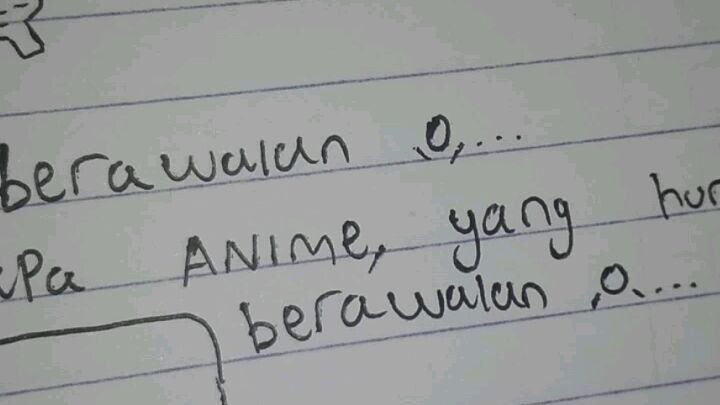 berawalan ,O,...
Pa ANIME, yang hur
berawalan ,O,....